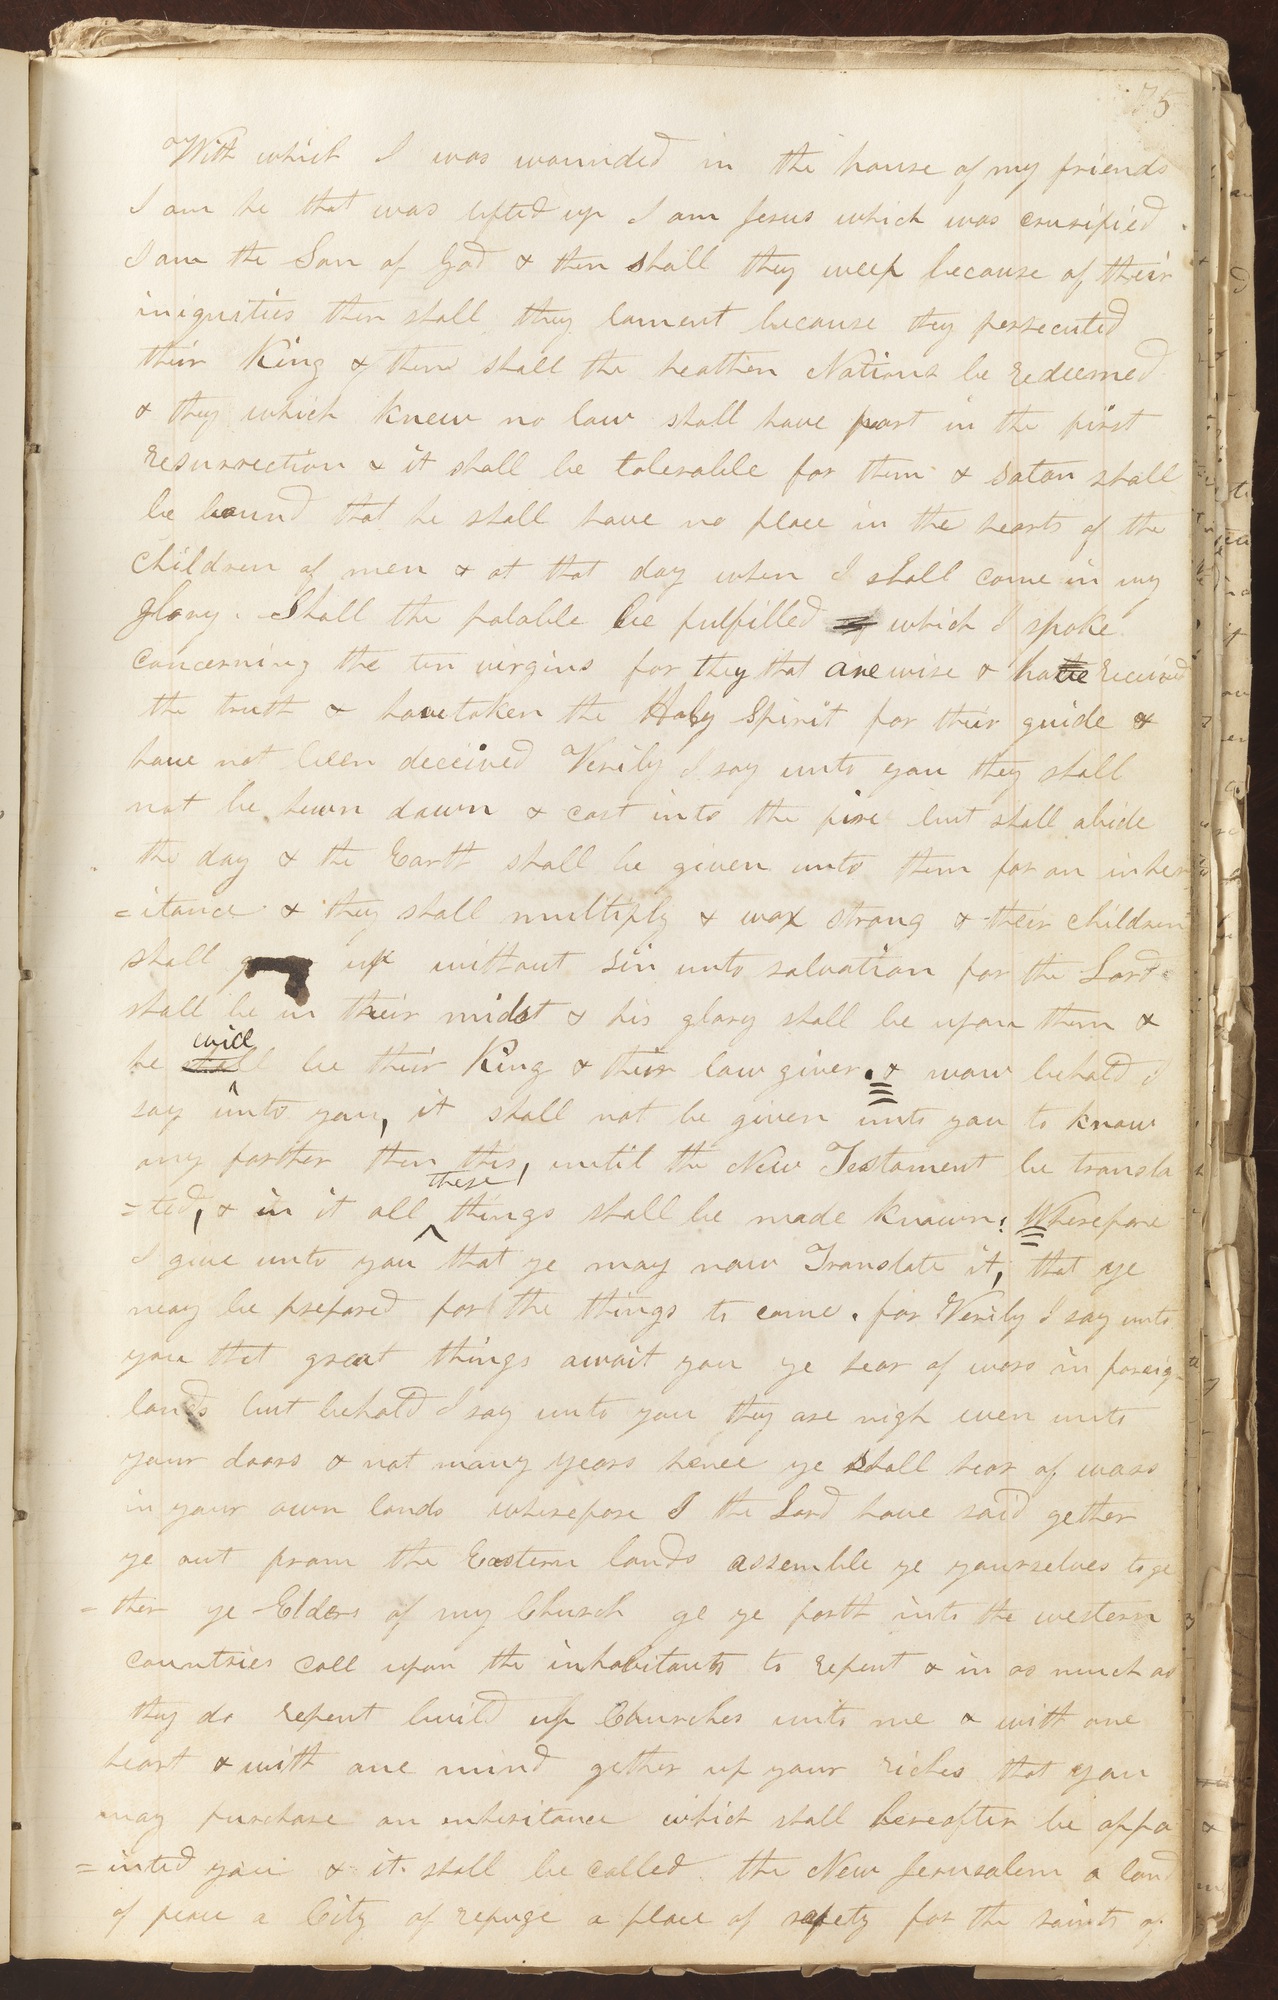 75
With which I was wounded in the house of my friends
I am he that was lifted up I am Jesus which was crusified
I am the Son of God & then shall they weep because of their
iniquities then shall they lament because they persecuted
their King & then shall the heathen Nations be redeemed
& they which knew no law shall have part in the first
resurrection & it shall be tolerable for them & satan shall
be bound that he shall have no place in the hearts of the
children of men & at that day when I shall come in my
glory. Shall the parable be fulfilled which I spoke
concerning the ten virgins for they that are wise & have received
the truth & have taken the Holy Spirit for their guide &
have not been deceived Verily I say unto you they shall
not be hewn down & cast into the fire but shall abide
the day & the Earth shall be given unto them for an inher
=itance & they shall multiply & wax strong & their children
shall up without sin unto salvation for the Lord
shall be in their midst & his glory shall be upon them &
he shall will be their King & their law giver. & now behold I
say unto you, it shall not be given unto you to know
any farther then this, until the New Testament be transla
=ted, & in it all these things shall be made known; Wherefore
I give unto you that ye may now Translate it, that ye
may be prepared for the things to come. for Verily I say unto
you that great things await you ye hear of wars in foreig
lands but behold I say unto you they are nigh even unto
your doors & not many years hence ye shall hear of wars
in your own lands wherefore I the Lord have said gether
ye out from the Eastern lands assemble ye yourselves toge
=ther ye Elders of my Church ge ye forth into the western
countries call upon the inhabitants to repent & in as much as
they do repent build up Churches unto me & with one
heart & with one mind gether up your riches that you
may purchase an enheritance which shall hereafter be appo
=inted you & it shall be called the New Jerusalem a land
of peace a City of refuge a place of safety for the saints of